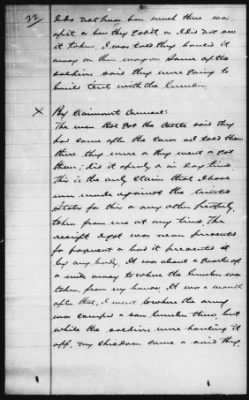 22
I do not know how much there was
of it or how they got it as I did not see
it taken. I was told they hauled it
away on their wagons. Some of the
soldiers said they were going to
build tents with the lumber.
X By Claimant's Counsel:
The men that got the cattle said they
had come after the cows and told them
there they were & they went & got
them; did it openly & in day time.
This is the only claim that I have
ever made against the United
States for this or any other property
taken from me at any time. The
receipt I got was never presented
for payment or had it presented
by any body. It was about a quarter of
a mile away to where the lumber was
taken, from my house. It was a month
after that, I went to where the army
was camped & saw lumber there, but
while the soldiers were hauling it
off, my children came & said they